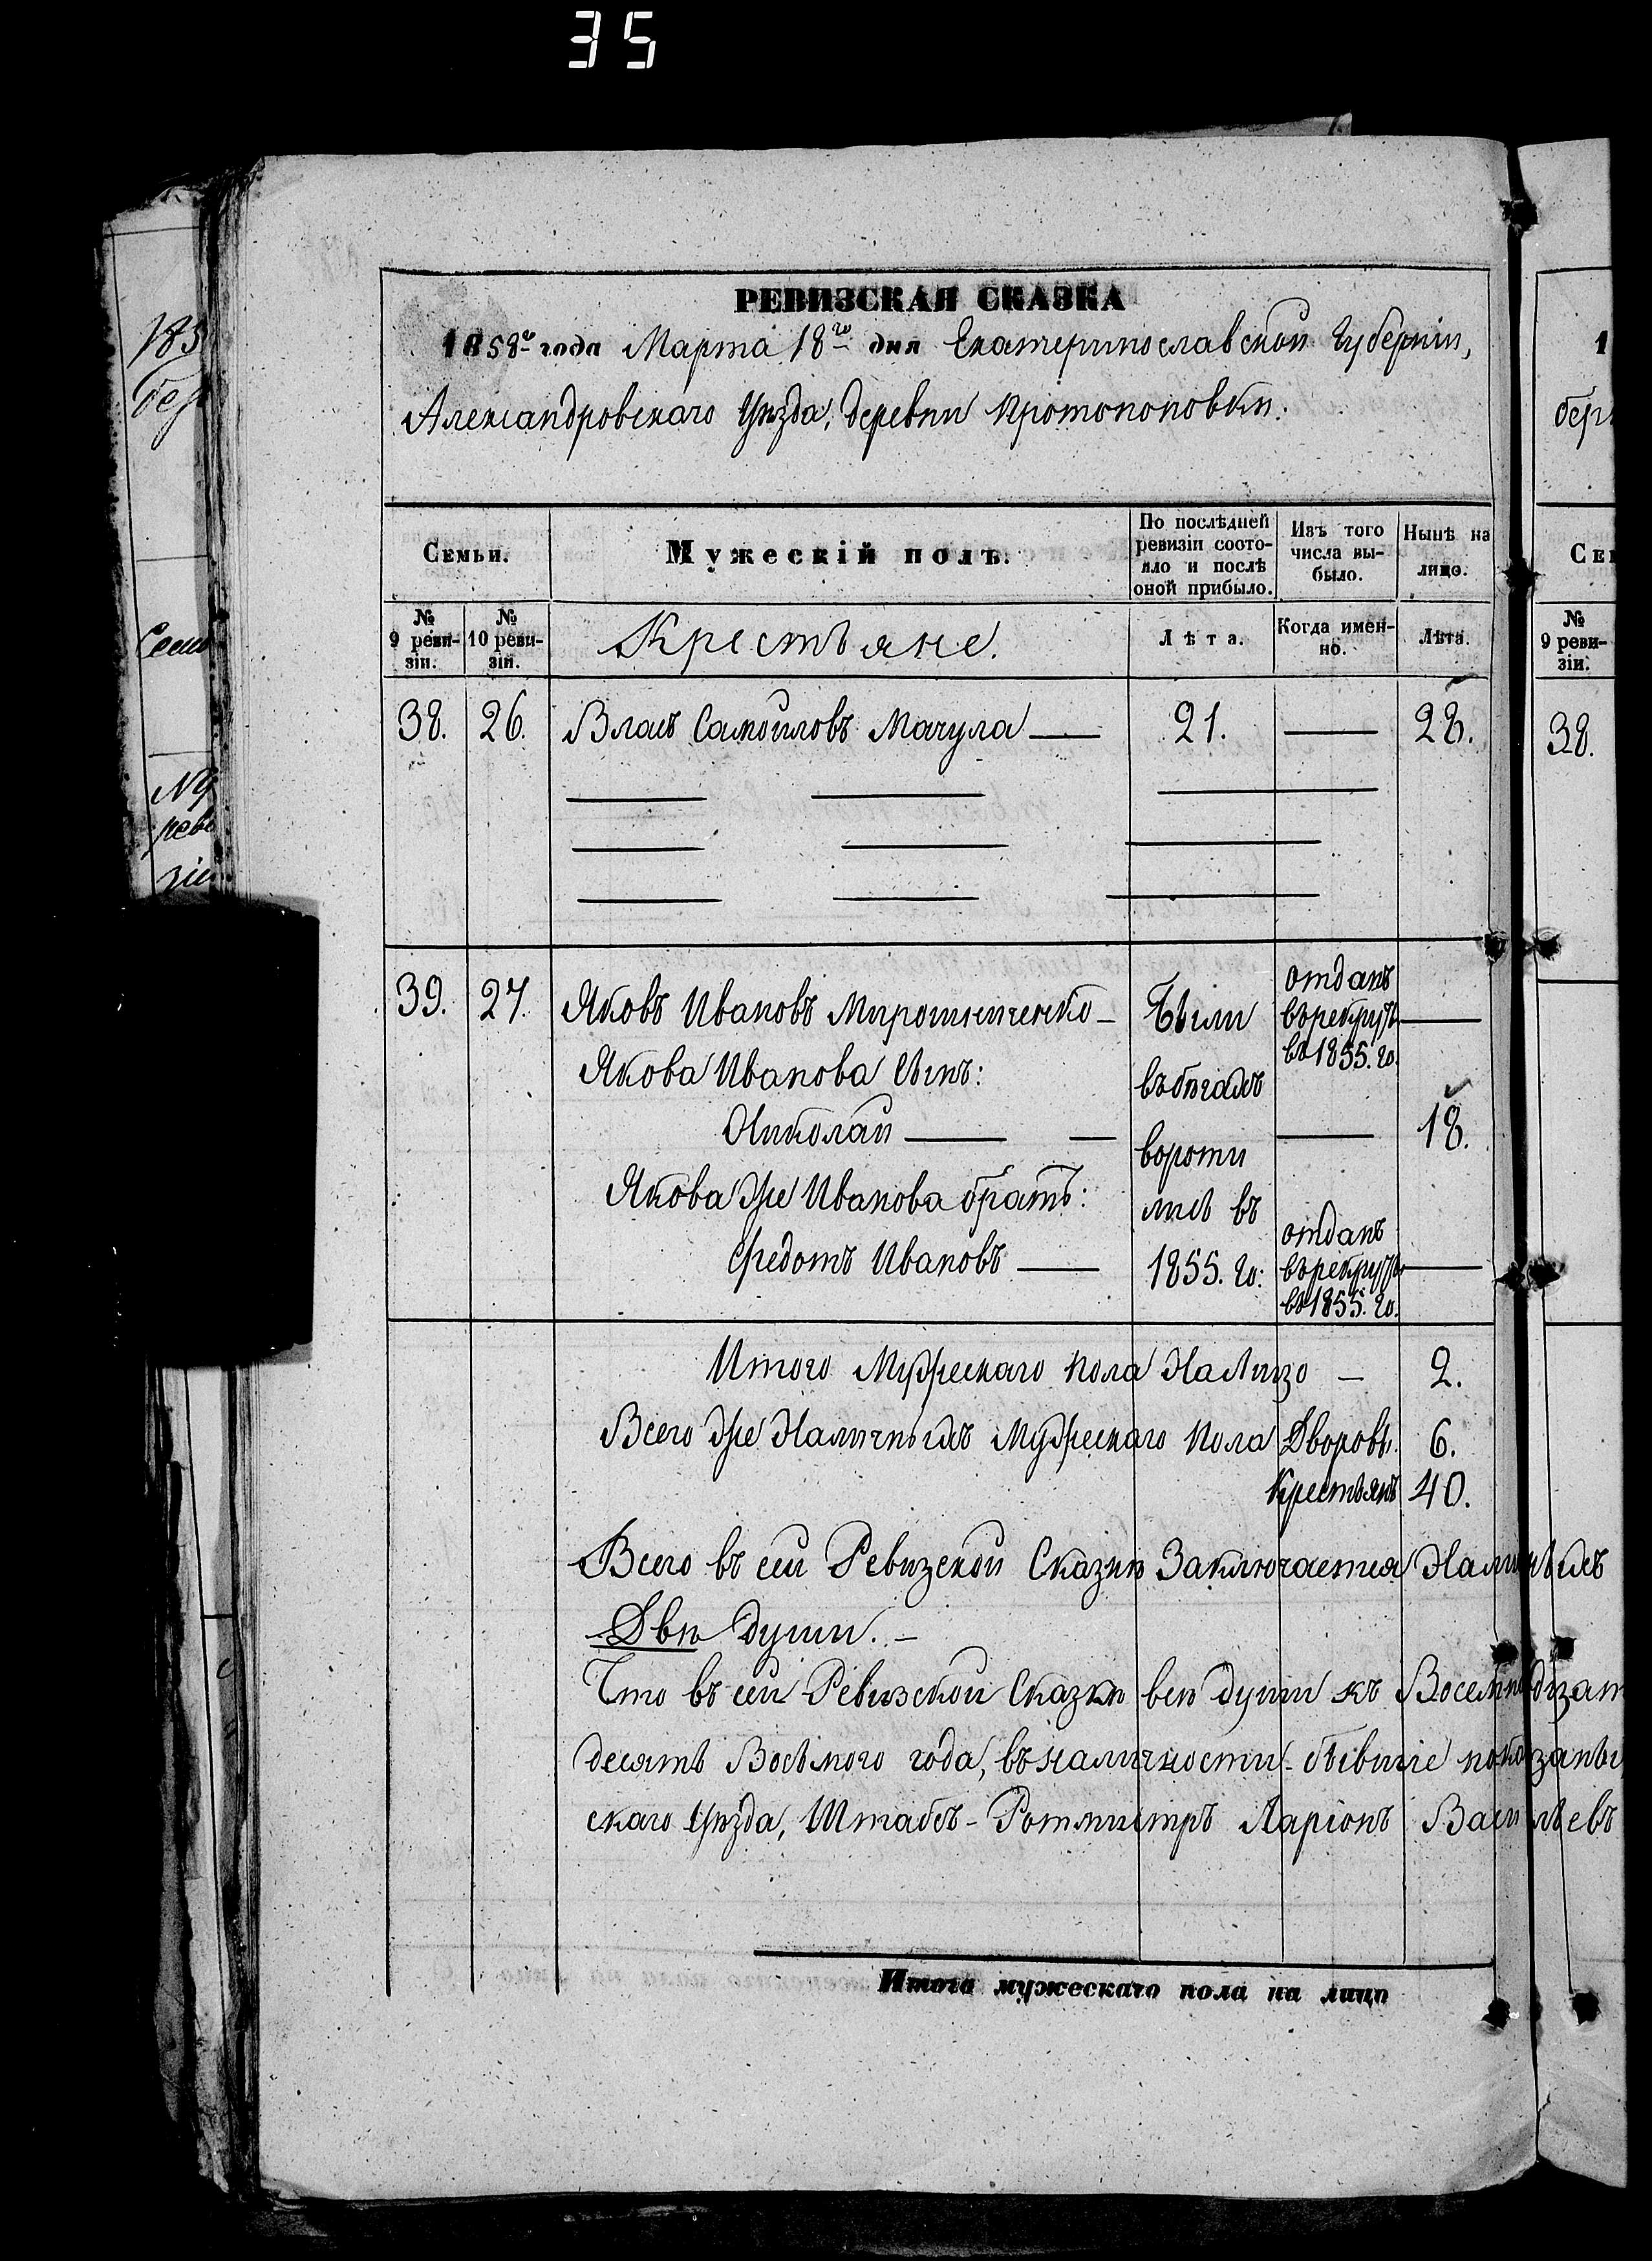 35
РЕВИЗСКАЯ СКАЗКА
1858го года Марта 18го дня Екатеринославской Губерніи,
Александровскаго Уѣзда, деревни Кротопоповки.
Семьи.
Мужескій полъ.
По послѣдней ревизіи состояло и послѣ оной прибыло.
Изъ того числа выбыло.
Нынѣ на лицо.
№ 9 ревизіи.
№ 10 ревизіи.
Крестьяне.
Лѣта.
Когда именно.
Лѣта.
38. 26. Власъ Самойловъ Мачула — 21. — 28.
39. 27. Яковъ Ивановъ Мирошниченко — Были отданъ въ рекруты въ 1855. го. —
Якова Иванова Сынъ: въ бѣгахъ
Николай — — вороти — 18.
Якова же Иванова братъ: лись въ
Федотъ Ивановъ — 1855. го: отданъ въ рекруты въ 1855. го. —
Итого Мужескаго пола На Лицо — 2.
Всего же Наличныхъ Мужескаго Пола Дворовы. 6.
Крестьянъ 40.
Всего въ сей Ревизской Сказкѣ Заключается Наличныхъ
Двѣ души. —
Что въ сей Ревизской Сказкѣ всѣ души къ
десять Восьмого года, въ наличности бывшіе
скаго Уѣзда, Штабсъ-Ротмистръ Ларіонъ Васильевъ
Итого мужескаго пола на лицо
185
Семь
N9
реви
зіи
1
бер
Сем
№ 9 ревизіи.
38.